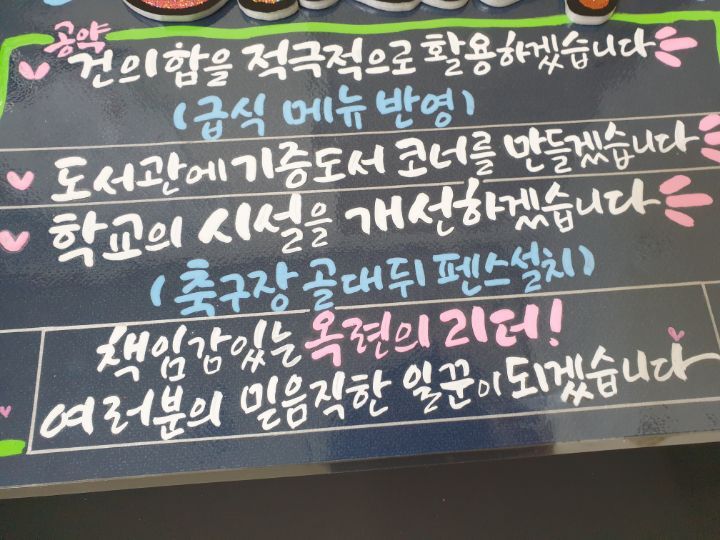 공약
건의함을 적극적으로 활용하겠습니다
(급식 메뉴 반영)
도서관에 기증도서 코너를 만들겠습니다
학교의 시설을 개선하겠습니다
(축구장 골대뒤 펜스설치)
책임감있는 옥련의 리더!
여러분의 믿음직한 일꾼이 되겠습니다